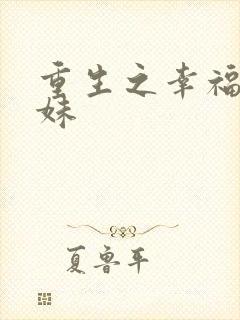 重生之幸福
妹
夏鲁平